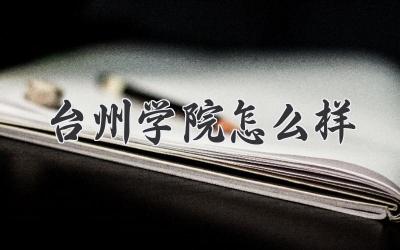 台州学院怎么样